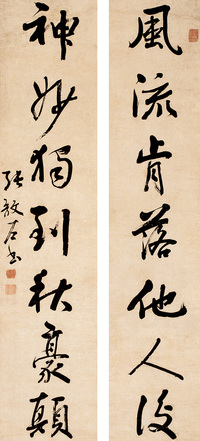 風流肯落他人後
神妙獨到秋豪顛
張敔左書